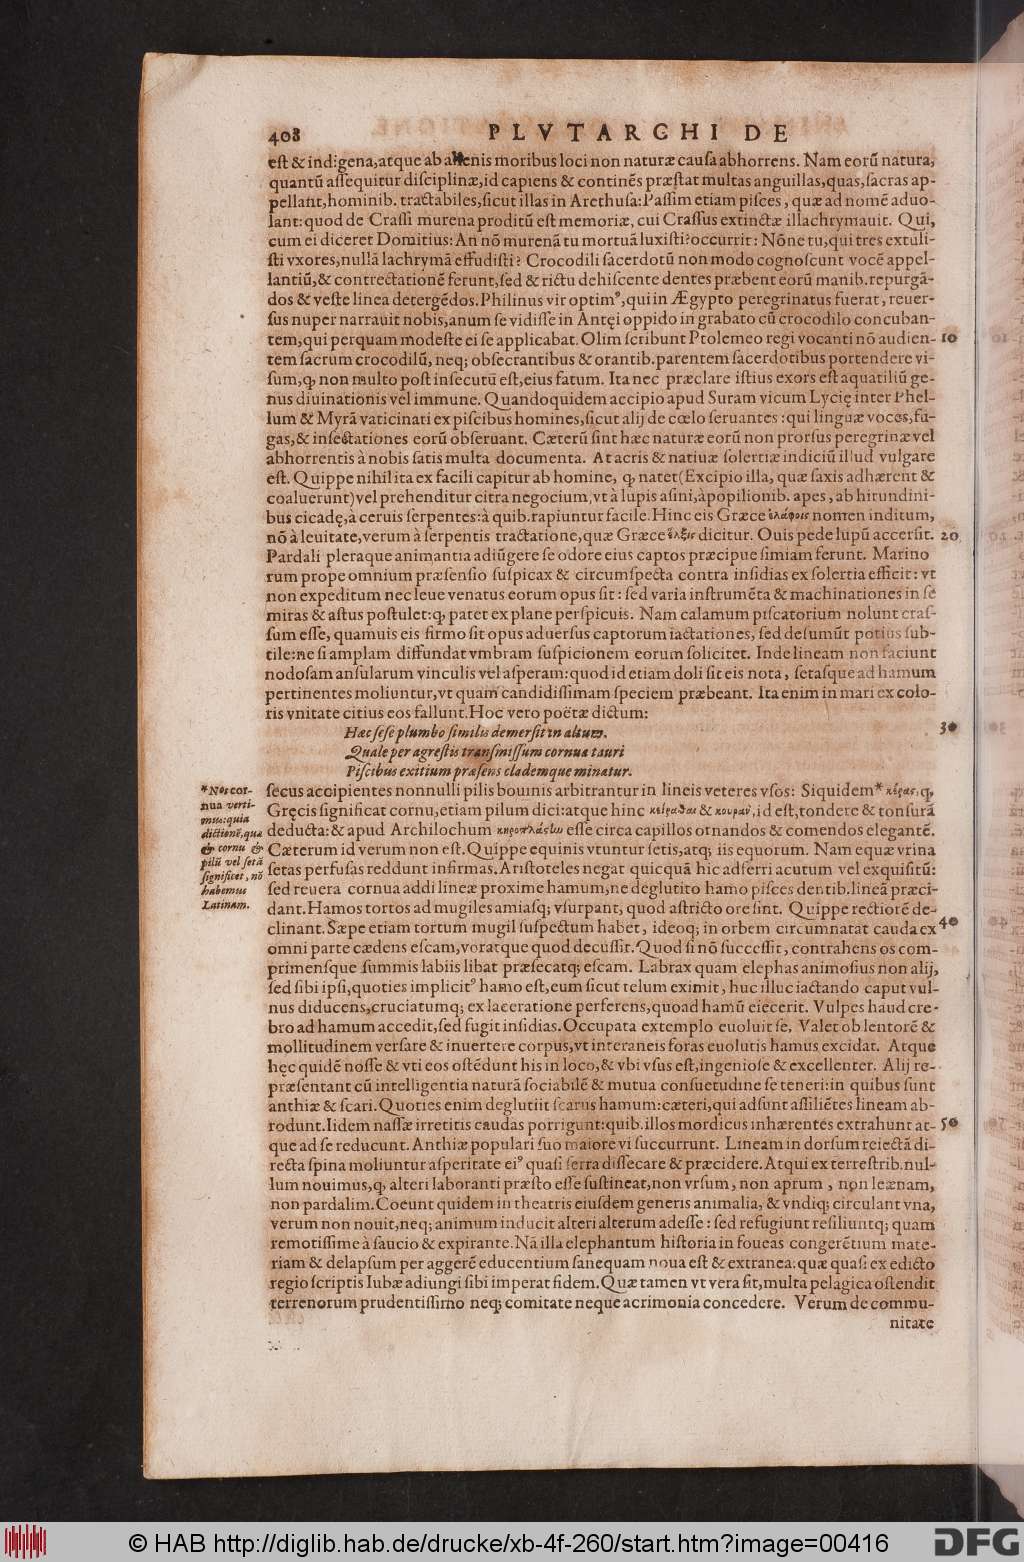 408 PLVTARCHI DE
est & indigena, atque ab alienis moribus loci non naturæ causa abhorrens. Nam eorũ natura,
quantũ assequitur disciplinæ, id capiens & continẽs præstat multas anguillas, quas, sacras ap-
pellant, hominib. tractabiles, sicut illas in Arethusa: Passim etiam pisces, quæ ad nomẽ aduo-
lant: quod de Crassi murena proditũ est memoriæ, cui Crassus extinctæ illachrymauit. Qui,
cum ei diceret Domitius: An nõ murenã tu mortuã luxisti? occurrit: Nõne tu, qui tres extuli-
sti vxores, nullã lachrymã effudisti? Crocodili sacerdotũ non modo cognoscunt vocẽ appel-
lantiũ, & contrectationẽ ferunt, sed & rictu dehiscente dentes præbent eorũ manib. repurgã-
dos & veste linea detergẽdos. Philinus vir optimꝰ, qui in Ægypto peregrinatus fuerat, reuer-
sus nuper narrauit nobis, anum se vidisse in Antęi oppido in grabato cũ crocodilo concuban-
tem, qui perquam modeste ei se applicabat. Olim scribunt Ptolemeo regi vocanti nõ audien- 10
tem sacrum crocodilũ, neq; obsecrantibus & orantib. parentem sacerdotibus portendere vi-
sum, ꝙ non multo post insecutũ est, eius fatum. Ita nec præclare istius exors est aquatiliũ ge-
nus diuinationis vel immune. Quandoquidem accipio apud Suram vicum Lycię inter Phel-
lum & Myrã vaticinari ex piscibus homines, sicut alij de cœlo seruantes: qui linguæ voces, fu-
gas, & insectationes eorũ obseruant. Cæterũ sint hæc naturæ eorũ non prorsus peregrinæ vel
abhorrentis à nobis satis multa documenta. At acris & natiuæ solertiæ indiciũ illud vulgare
est. Quippe nihil ita ex facili capitur ab homine, ꝙ natet (Excipio illa, quæ saxis adhærent &
coaluerunt) vel prehenditur citra negocium, vt à lupis asini, à popilionib. apes, ab hirundini-
bus cicadę, à ceruis serpentes: à quib. rapiuntur facile. Hinc eis Græce ἐλάφοις nomen inditum,
nõ à leuitate, verum à serpentis tractatione, quæ Græce ἕλξις dicitur. Ouis pede lupũ accersit. 20
Pardali pleraque animantia adiũgere se odore eius captos præcipue simiam ferunt. Marino
rum prope omnium præsensio suspicax & circumspecta contra insidias ex solertia efficit: vt
non expeditum nec leue venatus eorum opus sit: sed varia instrumẽta & machinationes in se
miras & astus postulet: ꝙ, patet ex plane perspicuis. Nam calamum piscatorium nolunt cras-
sum esse, quamuis eis firmo sit opus aduersus captorum iactationes, sed desumũt potius sub-
tile: ne si amplam diffundat vmbram suspicionem eorum solicitet. Inde lineam non faciunt
nodosam ansularum vinculis vel asperam: quod id etiam doli sit eis nota, setasque ad hamum
pertinentes moliuntur, vt quam candidissimam speciem præbeant. Ita enim in mari ex colo-
ris vnitate citius eos fallunt. Hoc vero poëtæ dictum:
Hæc sese plumbo similis demersit in altum. 30
Quale per agrestis transmissum cornua tauri
Piscibus exitium præsens clademque minatur.
secus accipientes nonnulli pilis bouinis arbitrantur in lineis veteres vsos: Siquidem * κέρας, ꝙ
Gręcis significat cornu, etiam pilum dici: atque hinc κείραθαι & κουραν, id est, tondere & tonsurã
deducta: & apud Archilochum κηροπλάστω esse circa capillos ornandos & comendos elegantẽ.
Cæterum id verum non est. Quippe equinis vtuntur setis, atq; iis equorum. Nam equæ vrina
setas perfusas reddunt infirmas. Aristoteles negat quicquã hic adferri acutum vel exquisitũ:
sed reuera cornua addi lineæ proxime hamum, ne deglutito hamo pisces dentib. lineã præci-
dant. Hamos tortos ad mugiles amiasq; vsurpant, quod astricto ore sint. Quippe rectiorẽ de-
clinant. Sæpe etiam tortum mugil suspectum habet, ideoq; in orbem circumnatat cauda ex 40
omni parte cædens escam, voratque quod decussit. Quod si nõ successit, contrahens os com-
primensque summis labiis libat præsecatq; escam. Labrax quam elephas animosius non alij,
sed sibi ipsi, quoties implicitꝰ hamo est, eum sicut telum eximit, huc illuc iactando caput vul-
nus diducens, cruciatumq; ex laceratione perferens, quoad hamũ eiecerit. Vulpes haud cre-
bro ad hamum accedit, sed fugit insidias. Occupata extemplo euoluit se. Valet ob lentorẽ &
mollitudinem versare & inuertere corpus, vt interaneis foras euolutis hamus excidat. Atque
hęc quidẽ nosse & vti eos ostẽdunt his in loco, & vbi vsus est, ingeniose & excellenter. Alij re-
præsentant cũ intelligentia naturã sociabilẽ & mutua consuetudine se teneri: in quibus sunt
anthiæ & scari. Quoties enim deglutiit scarus hamum: cæteri, qui adsunt assiliẽtes lineam ab-
rodunt. Iidem nassæ irretitis caudas porrigunt: quib. illos mordicus inhærentes extrahunt at- 50
que ad se reducunt. Anthiæ populari suo maiore vi succurrunt. Lineam in dorsum reiectã di-
recta spina moliuntur asperitate eiꝰ quasi serra dissecare & præcidere. Atqui ex terrestrib. nul-
lum nouimus, ꝙ alteri laboranti præsto esse sustineat, non vrsum, non aprum, non leænam,
non pardalim. Coeunt quidem in theatris eiusdem generis animalia, & vndiq; circulant vna,
verum non nouit, neq; animum inducit alteri alterum adesse: sed refugiunt resiliuntq; quam
remotissime à saucio & expirante. Nã illa elephantum historia in foueas congerẽtium mate-
riam & delapsum per aggerẽ educentium sanequam noua est & extranea: quæ quasi ex edicto
regio scriptis Iubæ adiungi sibi imperat fidem. Quæ tamen vt vera sit, multa pelagica ostendit
terrenorum prudentissimo neq; comitate neque acrimonia concedere. Verum de commu-
nitate
* Nos cor-
nua verti-
mus: quia
dictionẽ, quæ
& cornu &
pilũ vel setã
significet, nõ
habemus
Latinam.
© HAB http://diglib.hab.de/drucke/xb-4f-260/start.htm?image=00416
DFG